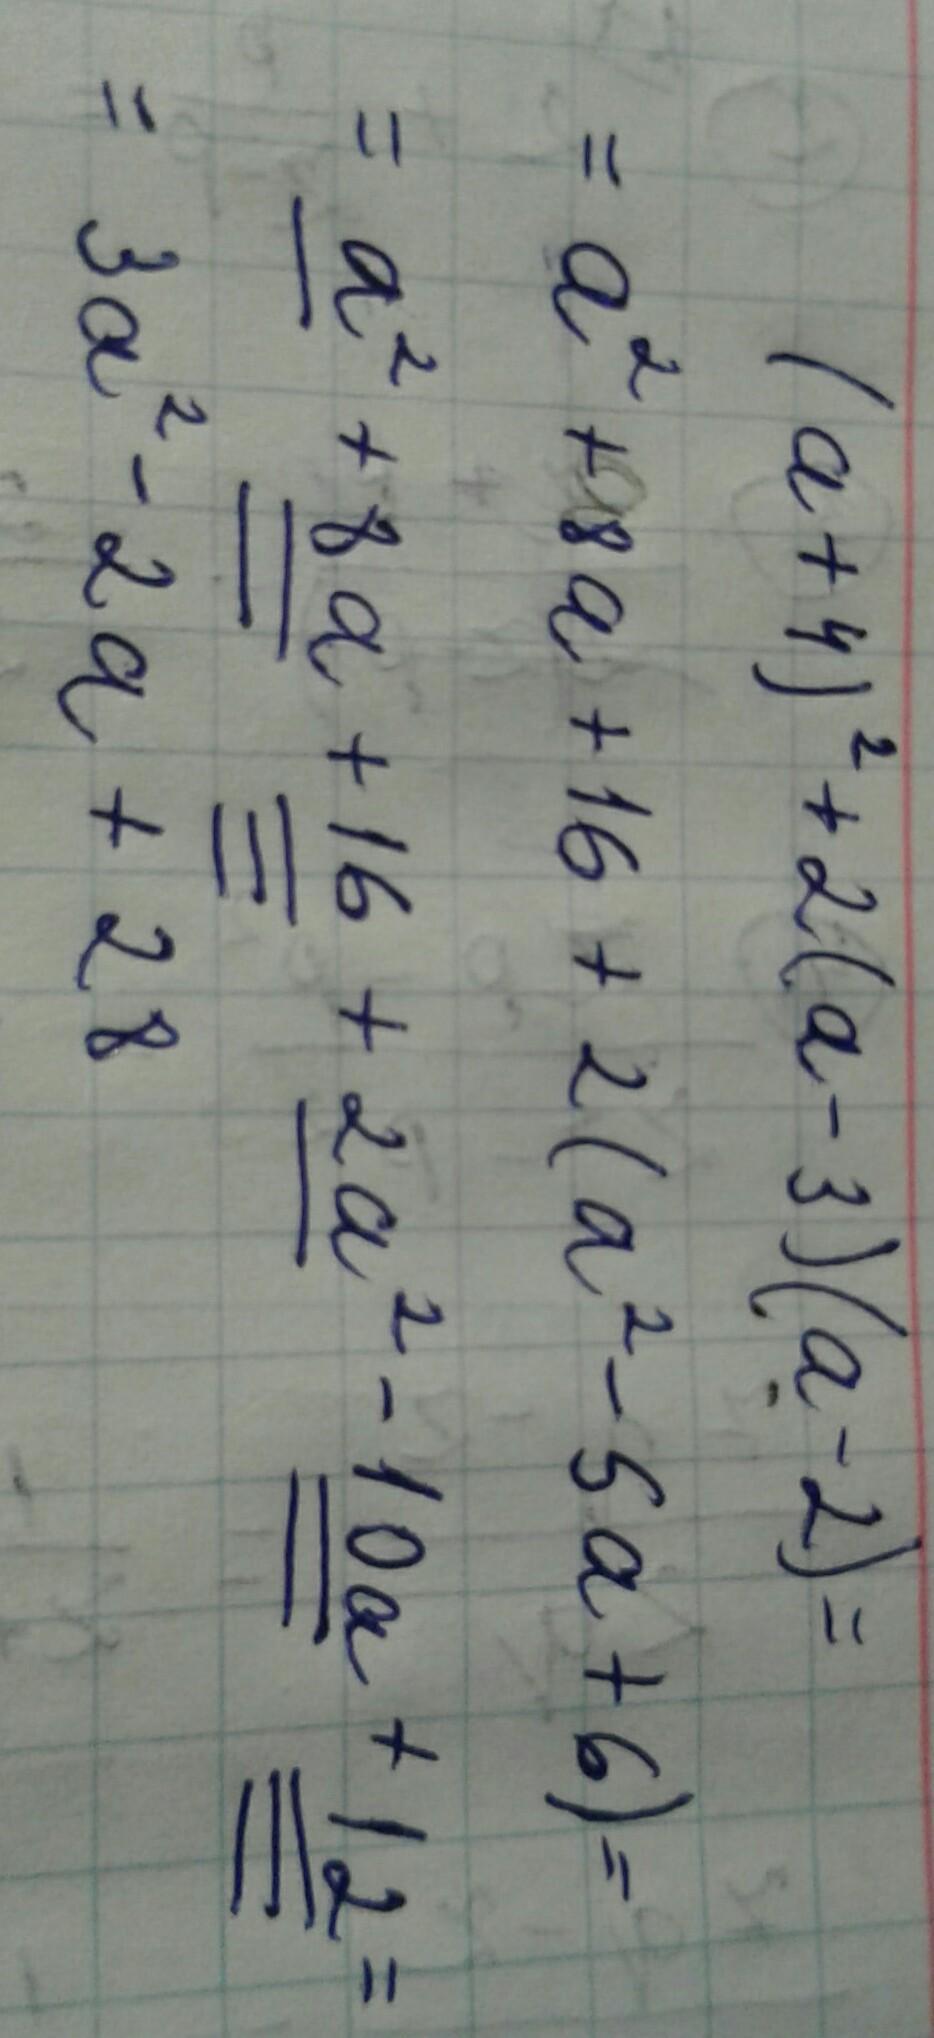 (a+4)²+2(a-3)(a-2)=
=a²+8a+16+2(a²-5a+6)=
=a²+8a+16+2a²-10a+12=
=3a²-2a+28